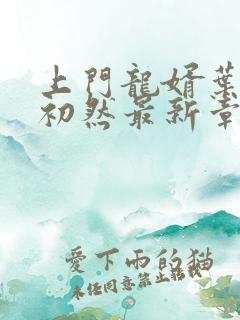 上門龍婿葉
初然最新章
愛下雨的貓
未经同意禁止转载